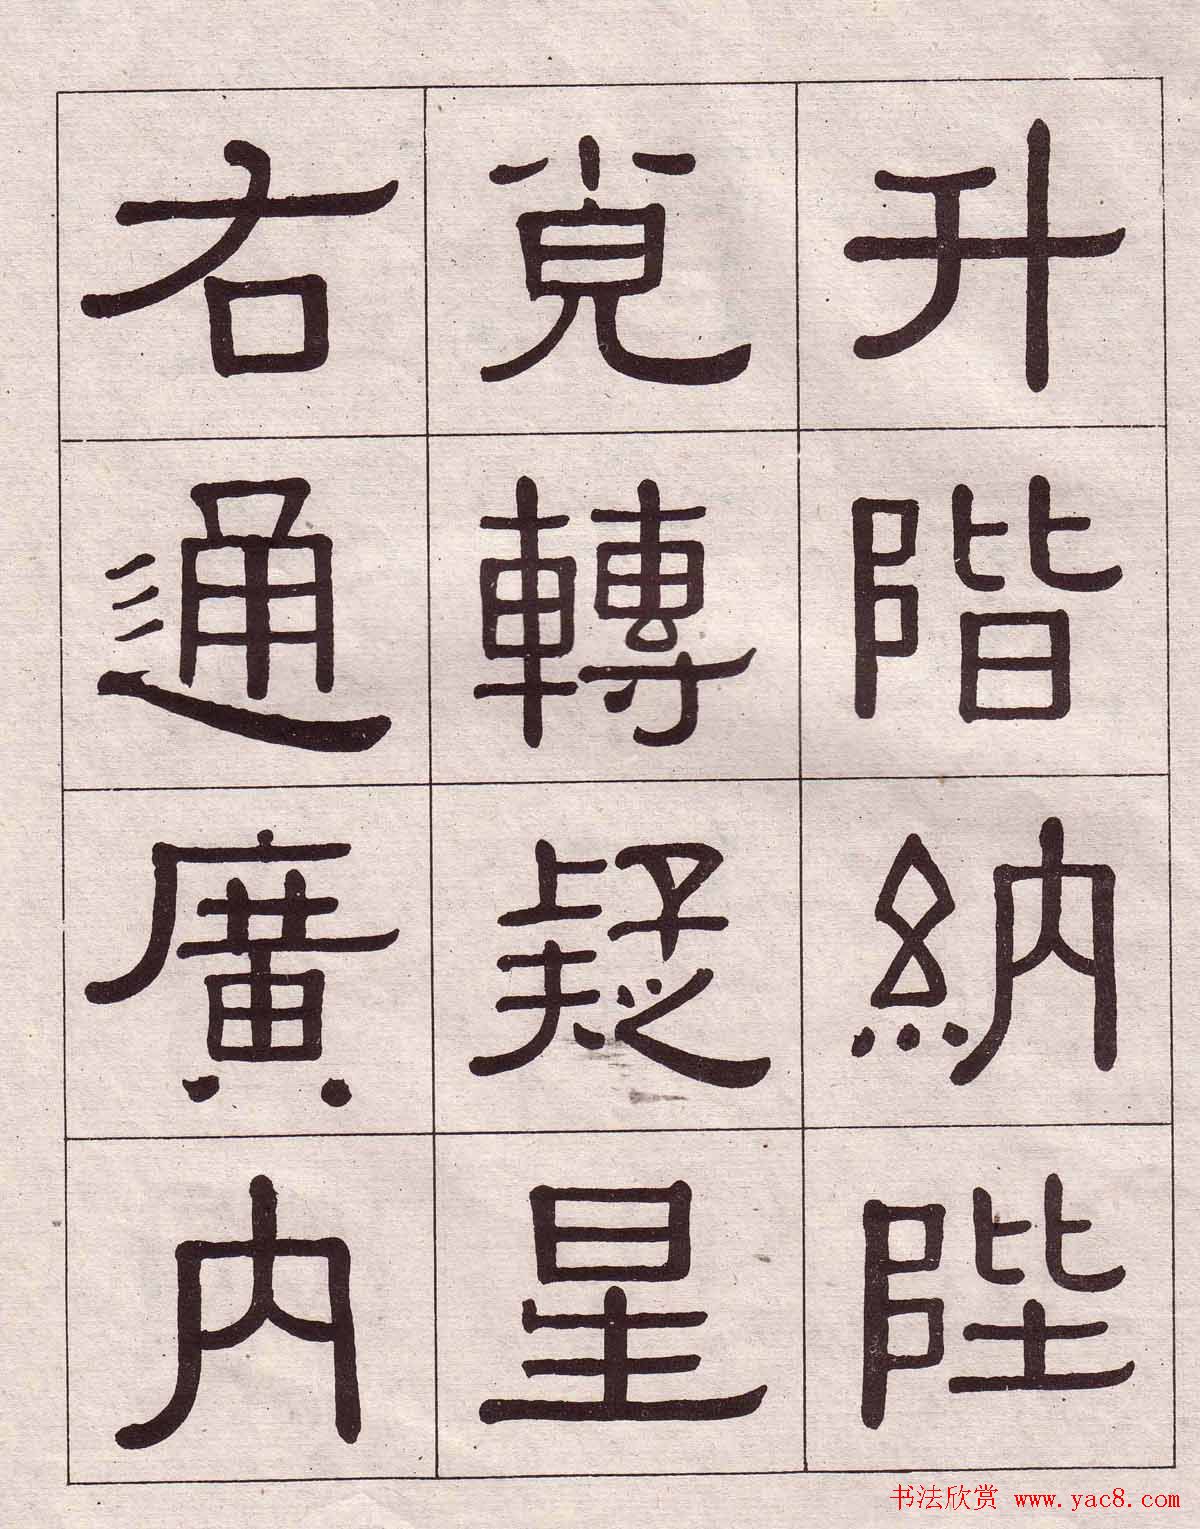 升階納陛
覍轉疑星
右通廣內
书法欣赏 www.yac8.com